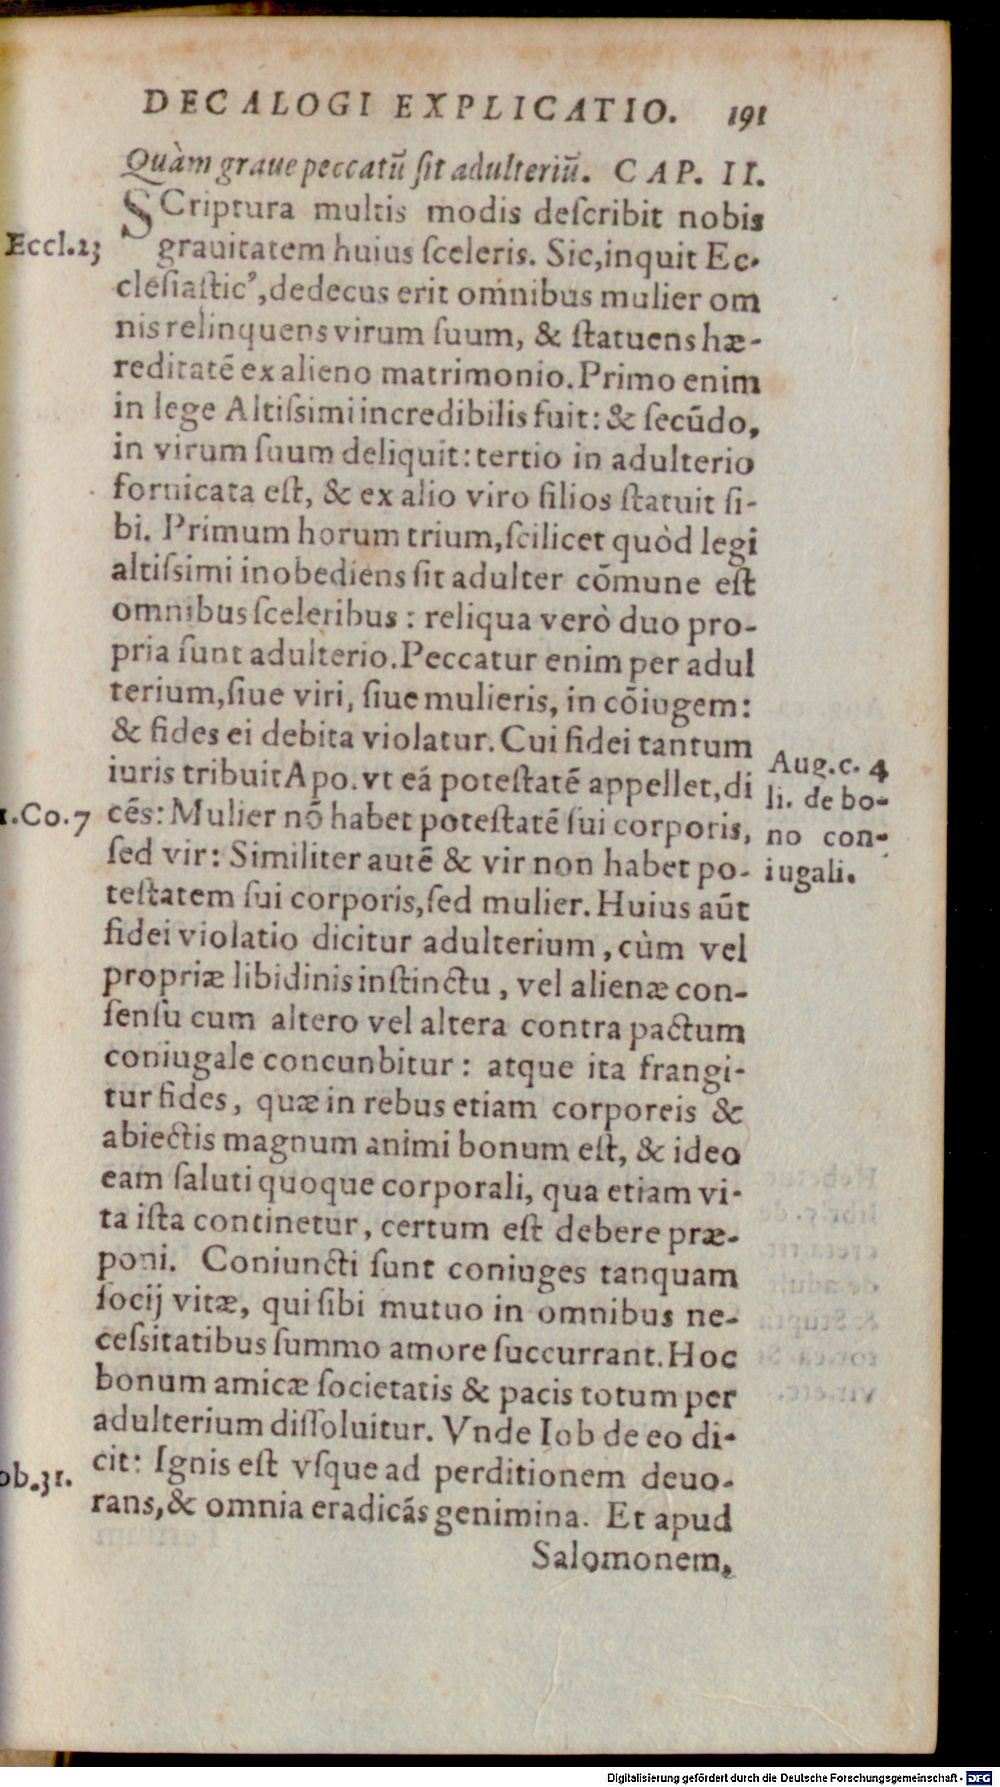 DECALOGI EXPLICATIO. 191
Quàm graue peccatū ſit adulteriū. CAP. II.
SCriptura multis modis deſcribit nobis
Eccl.23
grauitatem huius ſceleris. Sic, inquit Ec-
cleſiaſtic⁹, dedecus erit omnibus mulier om
nis relinquens virum ſuum, & ſtatuens hæ-
reditatē ex alieno matrimonio. Primo enim
in lege Altiſsimi incredibilis fuit: & ſecūdo,
in virum ſuum deliquit: tertio in adulterio
fornicata eſt, & ex alio viro filios ſtatuit ſi-
bi. Primum horum trium, ſcilicet quòd legi
altiſsimi inobediens ſit adulter cōmune eſt
omnibus ſceleribus: reliqua verò duo pro-
pria ſunt adulterio. Peccatur enim per adul
terium, ſiue viri, ſiue mulieris, in cōiugem:
& fides ei debita violatur. Cui fidei tantum
iuris tribuit Apo. vt eā poteſtatē appellet, di
Aug.c. 4
li. de bo-
no con-
iugali.
1.Co.7
cēs: Mulier nō habet poteſtatē ſui corporis,
ſed vir: Similiter autē & vir non habet po-
teſtatem ſui corporis, ſed mulier. Huius aūt
fidei violatio dicitur adulterium, cùm vel
propriæ libidinis inſtinctu, vel alienæ con-
ſenſu cum altero vel altera contra pactum
coniugale concunbitur: atque ita frangi-
tur fides, quæ in rebus etiam corporeis &
abiectis magnum animi bonum eſt, & ideo
eam ſaluti quoque corporali, qua etiam vi-
ta iſta continetur, certum eſt debere præ-
poni. Coniuncti ſunt coniuges tanquam
ſocij vitæ, qui ſibi mutuo in omnibus ne-
ceſsitatibus ſummo amore ſuccurrant. Hoc
bonum amicæ ſocietatis & pacis totum per
adulterium diſſoluitur. Vnde Iob de eo di-
ob.31.
cit: Ignis eſt vſque ad perditionem deuo-
rans, & omnia eradicās genimina. Et apud
Salomonem,
Digitalisierung gefördert durch die Deutsche Forschungsgemeinschaft - DFG